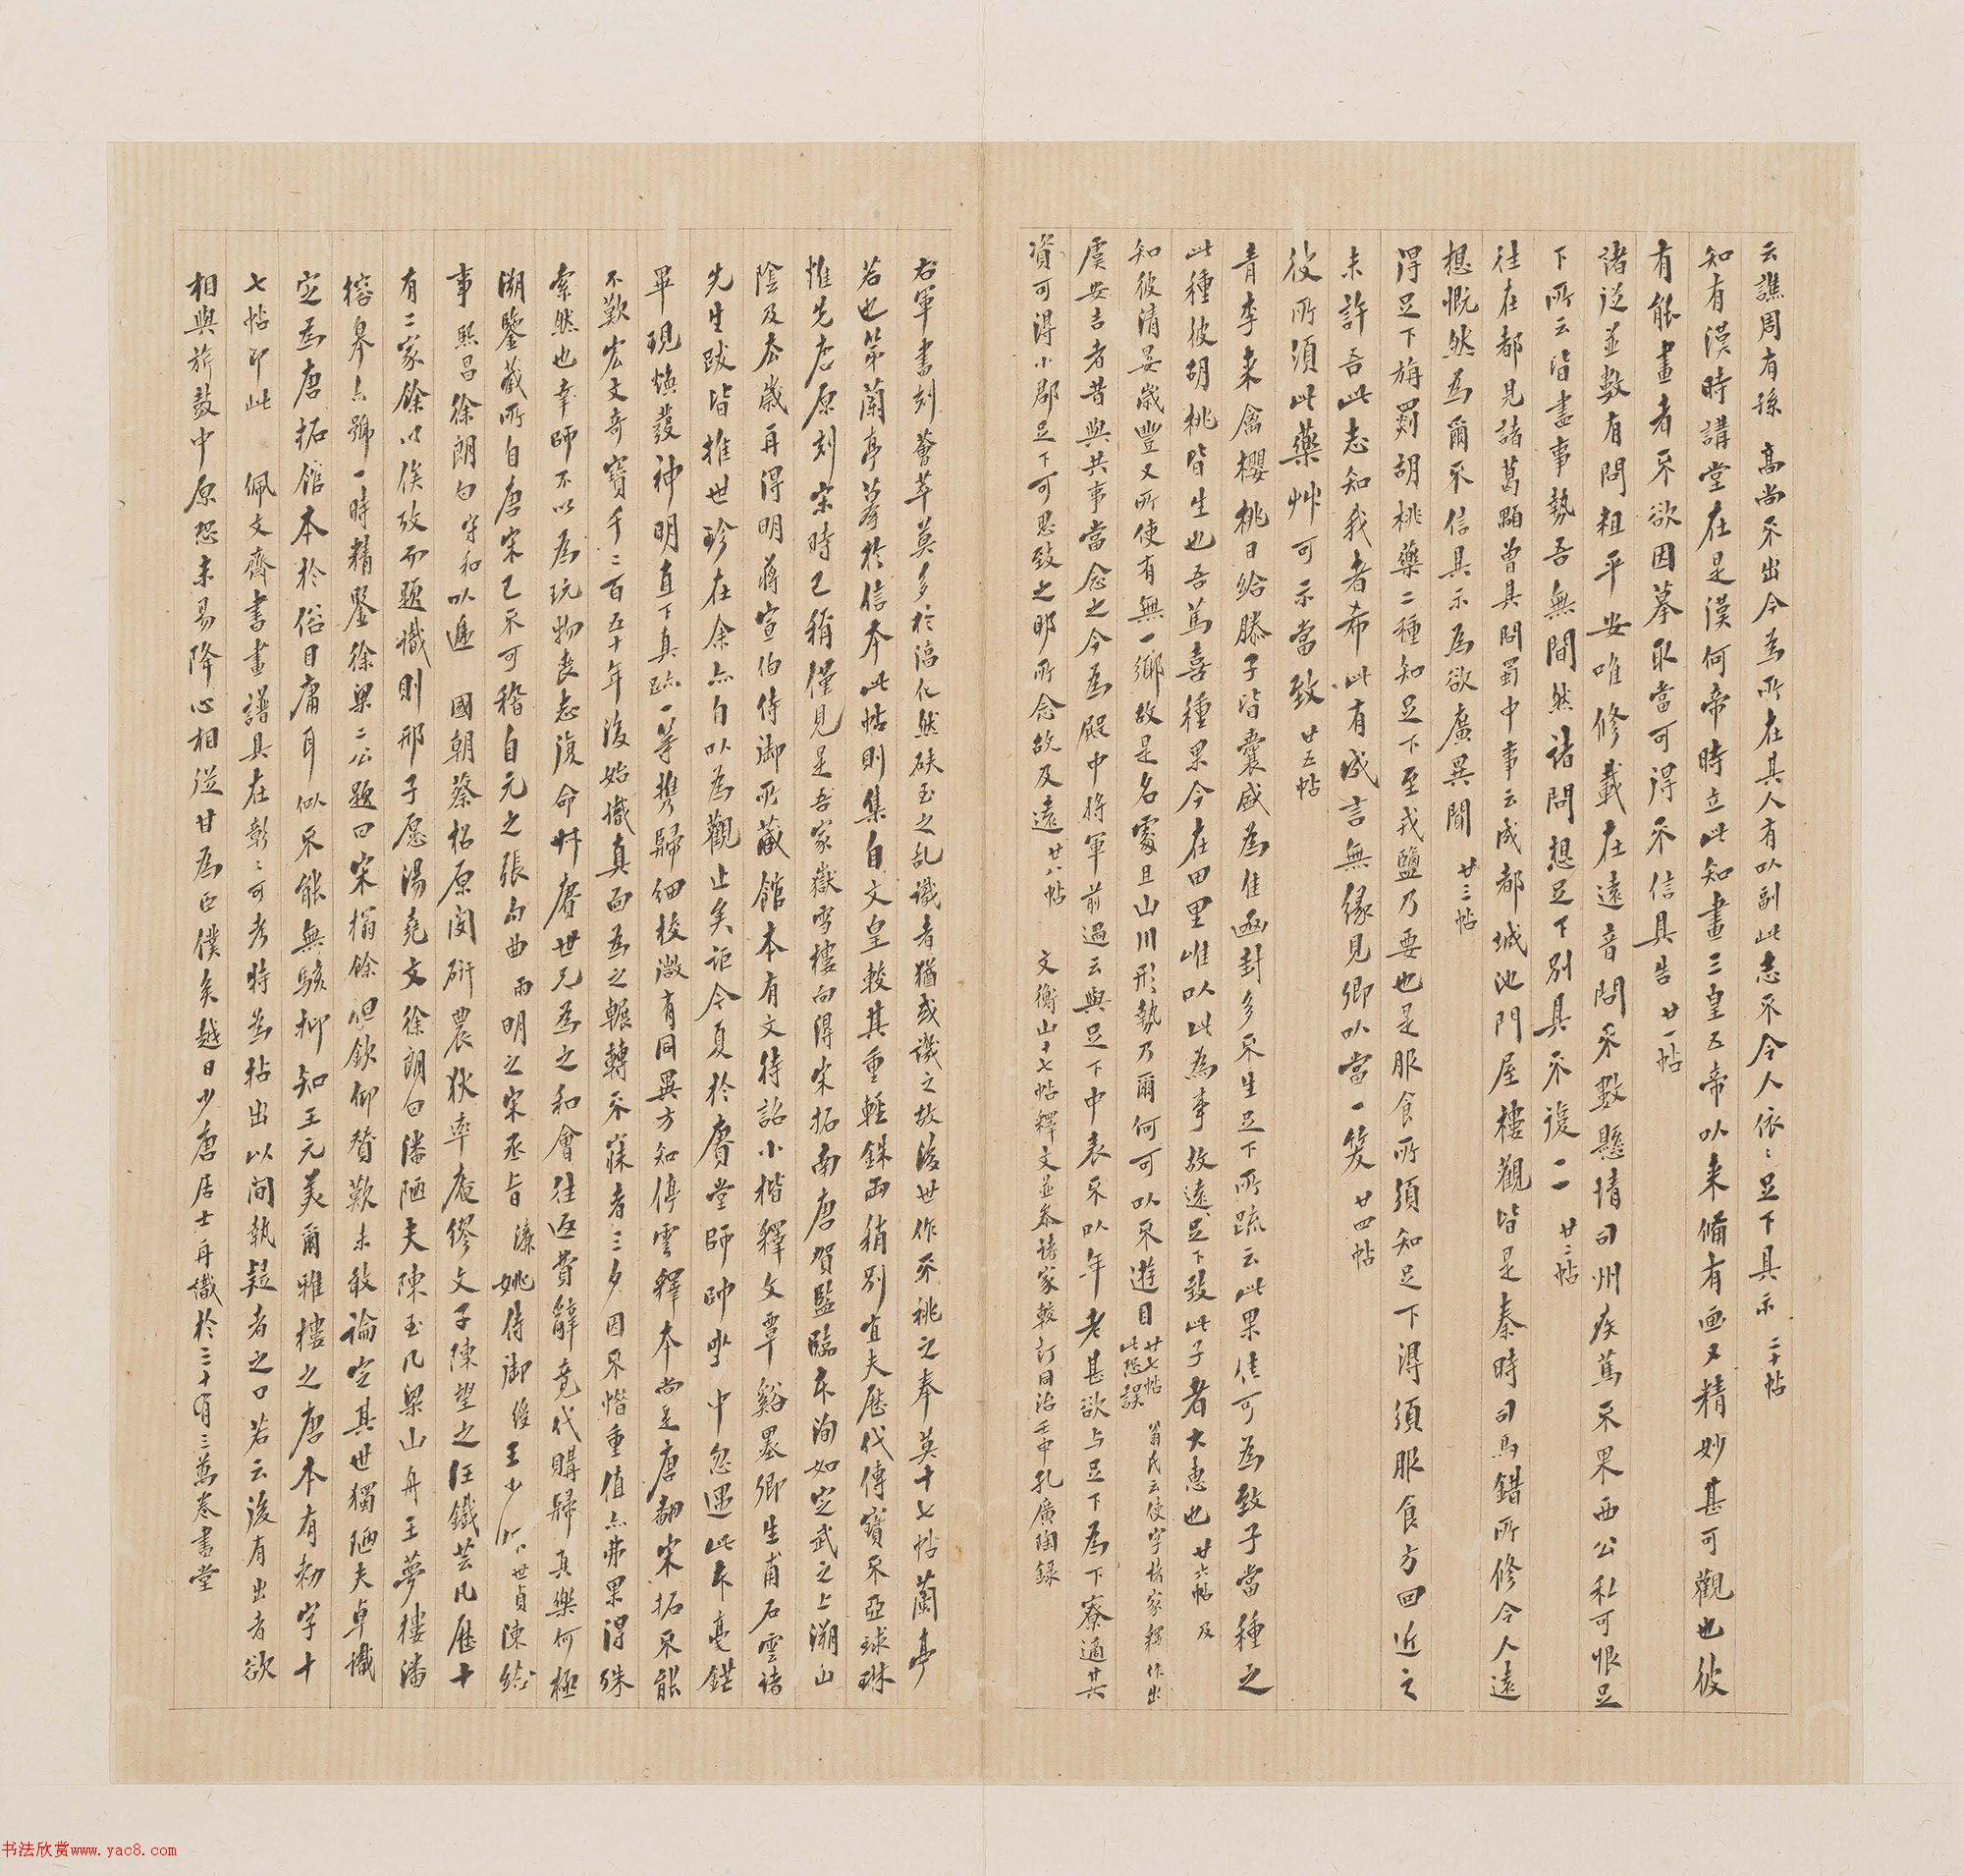 云譙周有孫　高尚不出今為所在其人有以副此志不令人依〻足下具示　二十帖
知有漢時講堂在是漢何帝時立此知畫三皇五帝以來備有画又精妙甚可觀也彼
有能畫者不欲因摹取當可得不信具告　廿一帖
諸從並數有問粗平安唯修載在遠音問不數懸情司州疾篤不果西公私可恨足
下所云皆盡事勢吾無間然諸問想足下別具不復一一　廿二帖
往在都見諸葛顯曾具問蜀中事云成都城池門屋樓觀皆是秦時司馬錯所修令人遠
想慨然為爾不信具示為欲廣異聞　廿三帖
得足下旃罽胡桃藥二種知足下至戎鹽乃要也是服食所須知足下得須服食方回近之
未許吾此志知我者希此有成言無緣見卿以當一笑　廿四帖
彼所須此藥艸可示當致　廿五帖
青李來禽櫻桃日給滕子皆囊盛為佳函封多不生足下所疏云此果佳可為致子當種之
此種彼胡桃皆生也吾篤喜種果今在田里唯以此為事故遠足下致此子者大惠也　廿六帖　及
知彼清晏歲豐又所使有無一鄉故是名處且山川形勢乃爾何可以不遊目　廿七帖　此恐誤　翁氏云使字諸家釋作出
虞安吉者昔與共事當念之今為殿中將軍前過云與足下中表不以年老甚欲與足下為下寮適其
資可得小郡足下可思致之耶所念故及遠　廿八帖　文衡山十七帖釋文並參諸家較訂同治壬申孔廣陶錄
右軍書刻薈萃莫多於淳化然砆玉之乱識者猶或譏之故後世作不祧之奉莫十七帖蘭亭
若也第蘭亭摹於信本此帖則集自文皇較其重輕銖兩稍別宜夫歷代傳寶不亞球琳
惟先唐原刻宋時已稱僅見是吾家嶽雪樓向得宋拓南唐賀監臨本洵如定武之上溯山
陰及本歲再得明蔣宣伯侍御所藏館本有文待詔小楷釋文覃谿墨卿生甫石雲諸
先生跋皆推世珍在余亦自以為觀止矣詎今夏於賡堂師帥㘴中忽遇此本毫鋩
畢現煥發神明直下真跡一等攜歸細校微有同異方知停雲釋本尚是唐翻宋拓不能
不歎宏文奇寶千二百五十年後始識真面為之輾轉不寐者三夕因不惜重值亦弗果得殊
索然也幸師不以為玩物喪志復命艸賡世兄為之和會往返費辭竟代購歸真樂何極
溯鑒藏所自唐宋已不可稽自元之張句曲　雨明之宋丞旨　濂姚侍御　綬王少　世貞陳給
事　熙昌徐朗白　守和以遞　國朝蔡松原閔研農狄率庵繆文子陳望之汪鐵芸凡歷十
有二家餘以俟攷而題識則邢子愿湯堯文徐朗白潘陋夫陳玉几梁山舟王夢樓潘
榕皋亦號一時精鑒徐梁二公題曰宋搨餘但欽仰贊歎未敢論定其世獨陋夫卓識
定為唐拓館本於俗目庸耳似不能無駭抑知王元美爾雅樓之唐本有勅字十
七帖即此　佩文齋書畫譜具在彰〻可考特為拈出以間執疑者之口若云後有出者欲
相與旂鼓中原恐未易降心相從甘為臣僕矣越日少唐居士再識於三十有三萬卷書堂
书法欣赏www.yac8.com